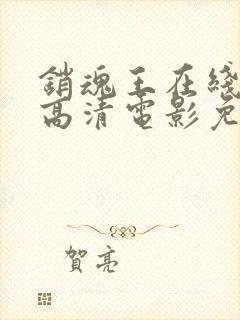 銷魂王在綫
高清電影免
賀亮